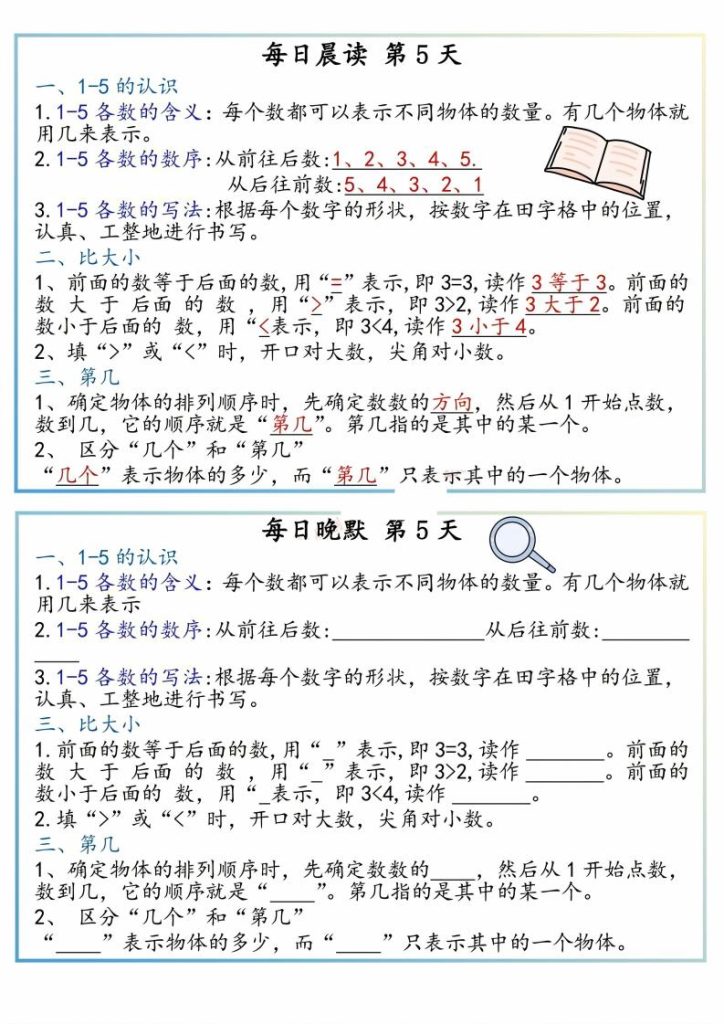 每日晨读 第5天
一、1-5的认识
1.1-5各数的含义：每个数都可以表示不同物体的数量。有几个物体就
用几来表示。
2.1-5各数的数序:从前往后数:1、2、3、4、5.
从后往前数:5、4、3、2、1
3.1-5各数的写法:根据每个数字的形状，按数字在田字格中的位置，
认真、工整地进行书写。
二、比大小
1、前面的数等于后面的数,用“=”表示,即3=3,读作3等于3。前面的
数 大 于 后面 的 数 ，用“>”表示，即3>2,读作3大于2。前面的
数小于后面的 数，用“<表示，即3<4,读作3小于4。
2、填“>”或“<”时，开口对大数，尖角对小数。
三、第几
1、确定物体的排列顺序时，先确定数数的方向，然后从1开始点数，
数到几，它的顺序就是“第几”。第几指的是其中的某一个。
2、 区分“几个”和“第几”
“几个”表示物体的多少，而“第几”只表示其中的一个物体。
每日晚默 第5天
一、1-5的认识
1.1-5各数的含义：每个数都可以表示不同物体的数量。有几个物体就
用几来表示
2.1-5各数的数序:从前往后数:______________从后往前数:________
____
3.1-5各数的写法:根据每个数字的形状，按数字在田字格中的位置，
认真、工整地进行书写。
三、比大小
1.前面的数等于后面的数,用“_”表示,即3=3,读作 _______。前面的
数 大 于 后面 的 数 ，用“_”表示，即3>2,读作 _______。前面的
数小于后面的 数，用“_表示，即3<4,读作 _______。
2.填“>”或“<”时，开口对大数，尖角对小数。
三、第几
1、确定物体的排列顺序时，先确定数数的____，然后从1开始点数，
数到几，它的顺序就是“____”。第几指的是其中的某一个。
2、 区分“几个”和“第几”
“____”表示物体的多少，而“____”只表示其中的一个物体。